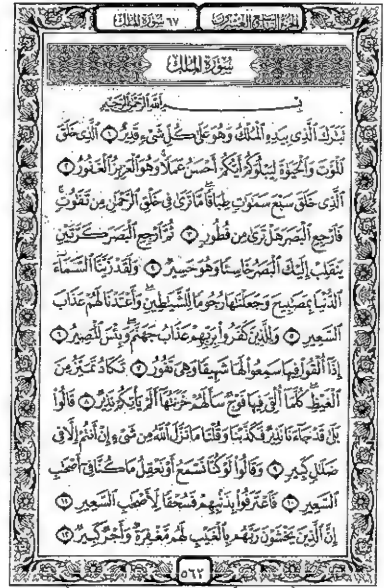 ٦٧ سورة الملك
الجزء التاسع والعشرون
سورة الملك
بسم الله الرحمن الرحيم
تبرك الذي بيده الملك وهو على كل شيء قدير ١ الذي خلق
الموت والحيوة ليبلوكم أيكم أحسن عملا وهو العزيز الغفور ٢
الذي خلق سبع سموت طباقا ما ترى في خلق الرحمن من تفوت
فارجع البصر هل ترى من فطور ٣ ثم ارجع البصر كرتين
ينقلب إليك البصر خاسئا وهو حسير ٤ ولقد زينا السماء
الدنيا بمصبيح وجعلنها رجوما للشيطين وأعتدنا لهم عذاب
السعير ٥ وللذين كفروا بربهم عذاب جهنم وبئس المصير ٦
إذا ألقوا فيها سمعوا لها شهيقا وهي تفور ٧ تكاد تميز من
الغيظ كلما ألقي فيها فوج سألهم خزنتها ألم يأتكم نذير ٨ قالوا
بلى قد جاءنا نذير فكذبنا وقلنا ما نزل الله من شيء إن أنتم إلا في
ضلل كبير ٩ وقالوا لو كنا نسمع أو نعقل ما كنا في أصحب
السعير ١٠ فاعترفوا بذنبهم فسحقا لأصحب السعير ١١
إن الذين يخشون ربهم بالغيب لهم مغفرة وأجر كبير ١٢
٥٦٢